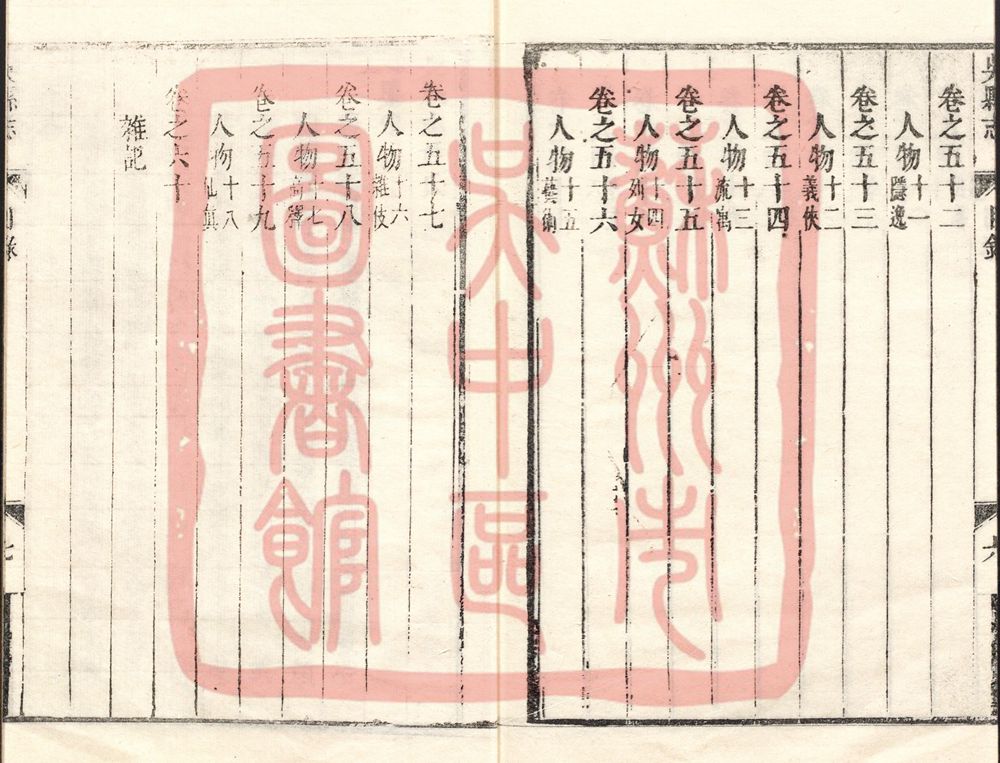 吳縣志
目錄
六
卷之五十二
人物十一隱逸
卷之五十三
人物十二義俠
卷之五十四
人物十三流寓
卷之五十五
人物十四列女
卷之五十六
人物十五藝術
卷之五十七
人物十六雜伎
卷之五十八
人物十七釋
卷之五十九
人物十八仙真
卷之六十
雜記
目錄
七
蘇州市
吳中區
圖書館